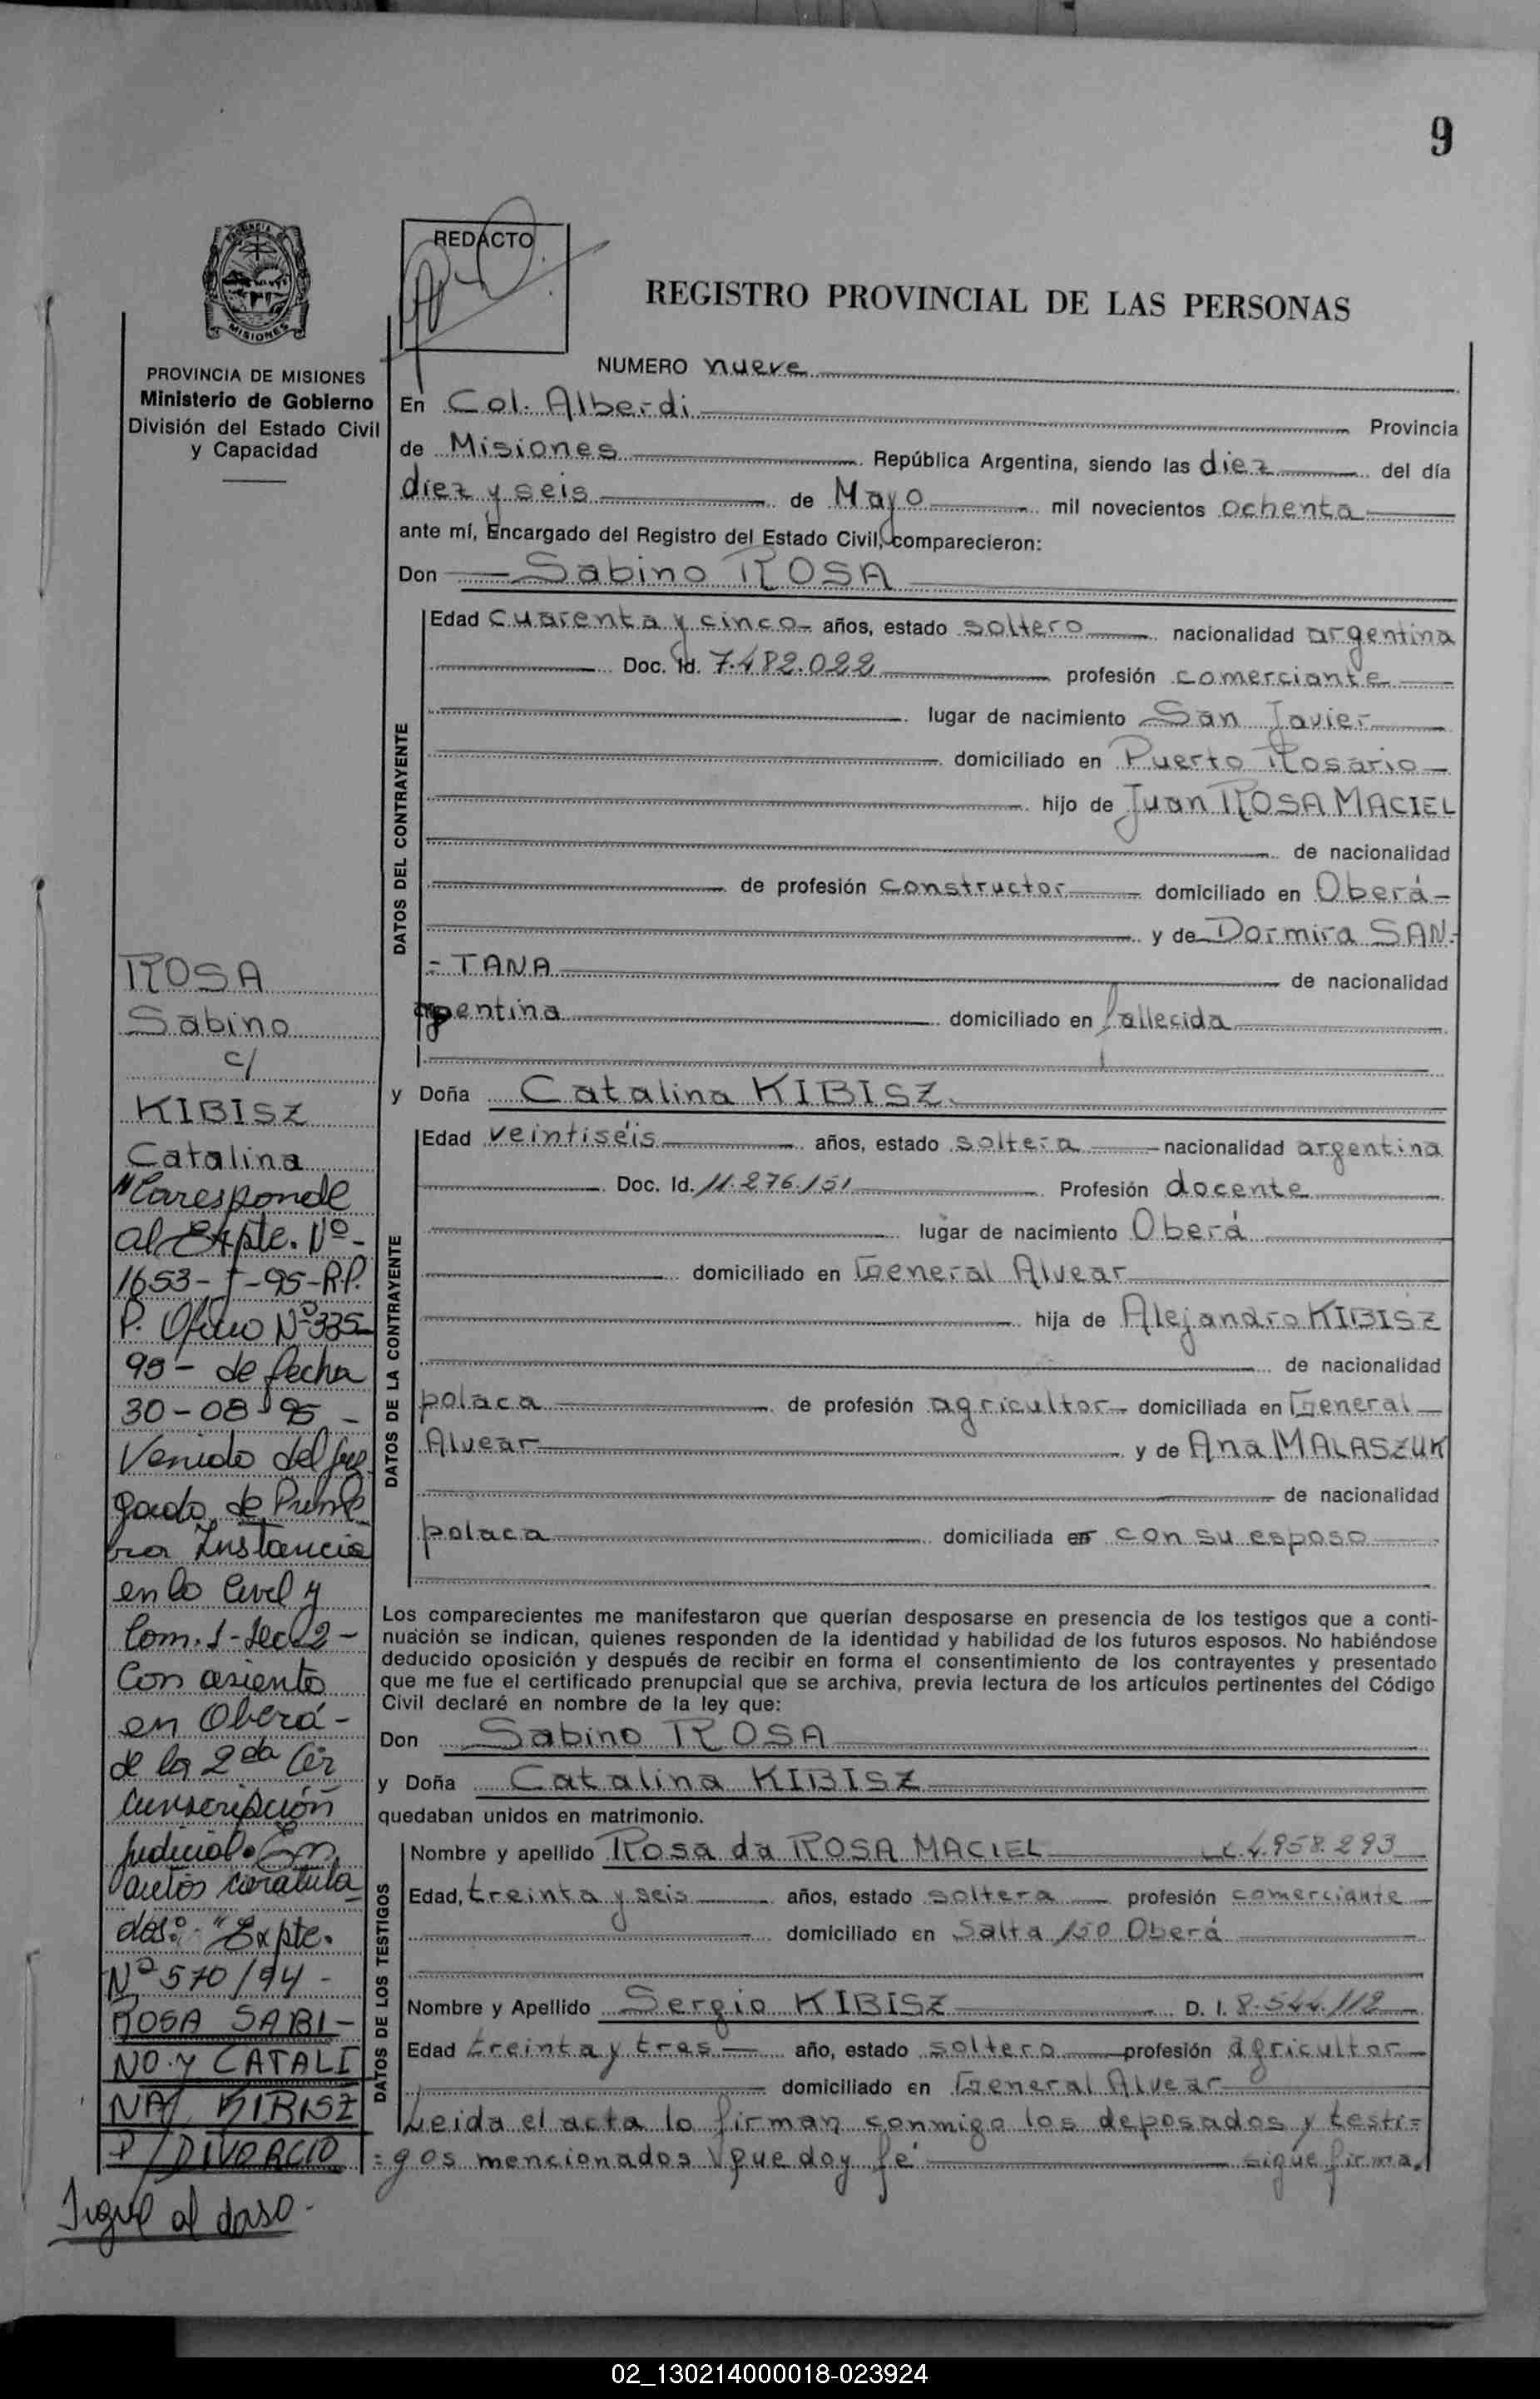 9
MISIONES
PROVINCIA DE MISIONES
Ministerio de Gobierno
División del Estado Civil
y Capacidad
REDACTO
REGISTRO PROVINCIAL DE LAS PERSONAS
NUMERO nueve
En Col. Alberdi Provincia
de Misiones República Argentina, siendo las diez del día
diez y seis de Mayo mil novecientos ochenta
ante mí, Encargado del Registro del Estado Civil, comparecieron:
Don Sabino ROSA
DATOS DEL CONTRAYENTE
Edad cuarenta y cinco años, estado soltero nacionalidad argentina
Doc. Id. 7.482.022 profesión comerciante
lugar de nacimiento San Javier
domiciliado en Puerto Rosario
hijo de Juan ROSA MACIEL
de nacionalidad
de profesión constructor domiciliado en Oberá
y de Dormira SAN-
-TANA de nacionalidad
argentina domiciliado en fallecida
y Doña Catalina KIBISZ
DATOS DE LA CONTRAYENTE
Edad veintiséis años, estado soltera nacionalidad argentina
Doc. Id. 11.276.151 Profesión docente
lugar de nacimiento Oberá
domiciliado en General Alvear
hija de Alejandro KIBISZ
de nacionalidad
polaca de profesión agricultor domiciliada en General
Alvear y de Ana MALASZUK
de nacionalidad
polaca domiciliada en con su esposo
Los comparecientes me manifestaron que querían desposarse en presencia de los testigos que a conti-
nuación se indican, quienes responden de la identidad y habilidad de los futuros esposos. No habiéndose
deducido oposición y después de recibir en forma el consentimiento de los contrayentes y presentado
que me fue el certificado prenupcial que se archiva, previa lectura de los artículos pertinentes del Código
Civil declaré en nombre de la ley que:
Don Sabino ROSA
y Doña Catalina KIBISZ
quedaban unidos en matrimonio.
DATOS DE LOS TESTIGOS
Nombre y apellido Rosa da ROSA MACIEL 4.958.293
Edad, treinta y seis años, estado soltera profesión comerciante
domiciliado en Salta 150 Oberá
Nombre y Apellido Sergio KIBISZ D. I. 8.544.112
Edad treinta y tres año, estado soltero profesión agricultor
domiciliado en General Alvear
Leida el acta lo firman conmigo los deposados y testi=
=gos mencionados que doy fé sigue firma.
ROSA
Sabino
c/
KIBISZ
Catalina
"Corresponde
al Expte. Nº-
1653-T-95-R.P.
P. Oficio Nº335
95- de fecha
30-08-95-
Venido del Juz
gado de Prime
ra Instancia
en lo Civil y
Com. 1-Sec.2-
Con asiento
en Oberá-
de la 2da Cir
cunscripción
Judicial. En
autos caratula
dos: "Expte.
Nº570/94-
ROSA SABI-
NO Y CATALI
NA KIBISZ
P/DIVORCIO
Sigue al dorso-
02_130214000018-023924